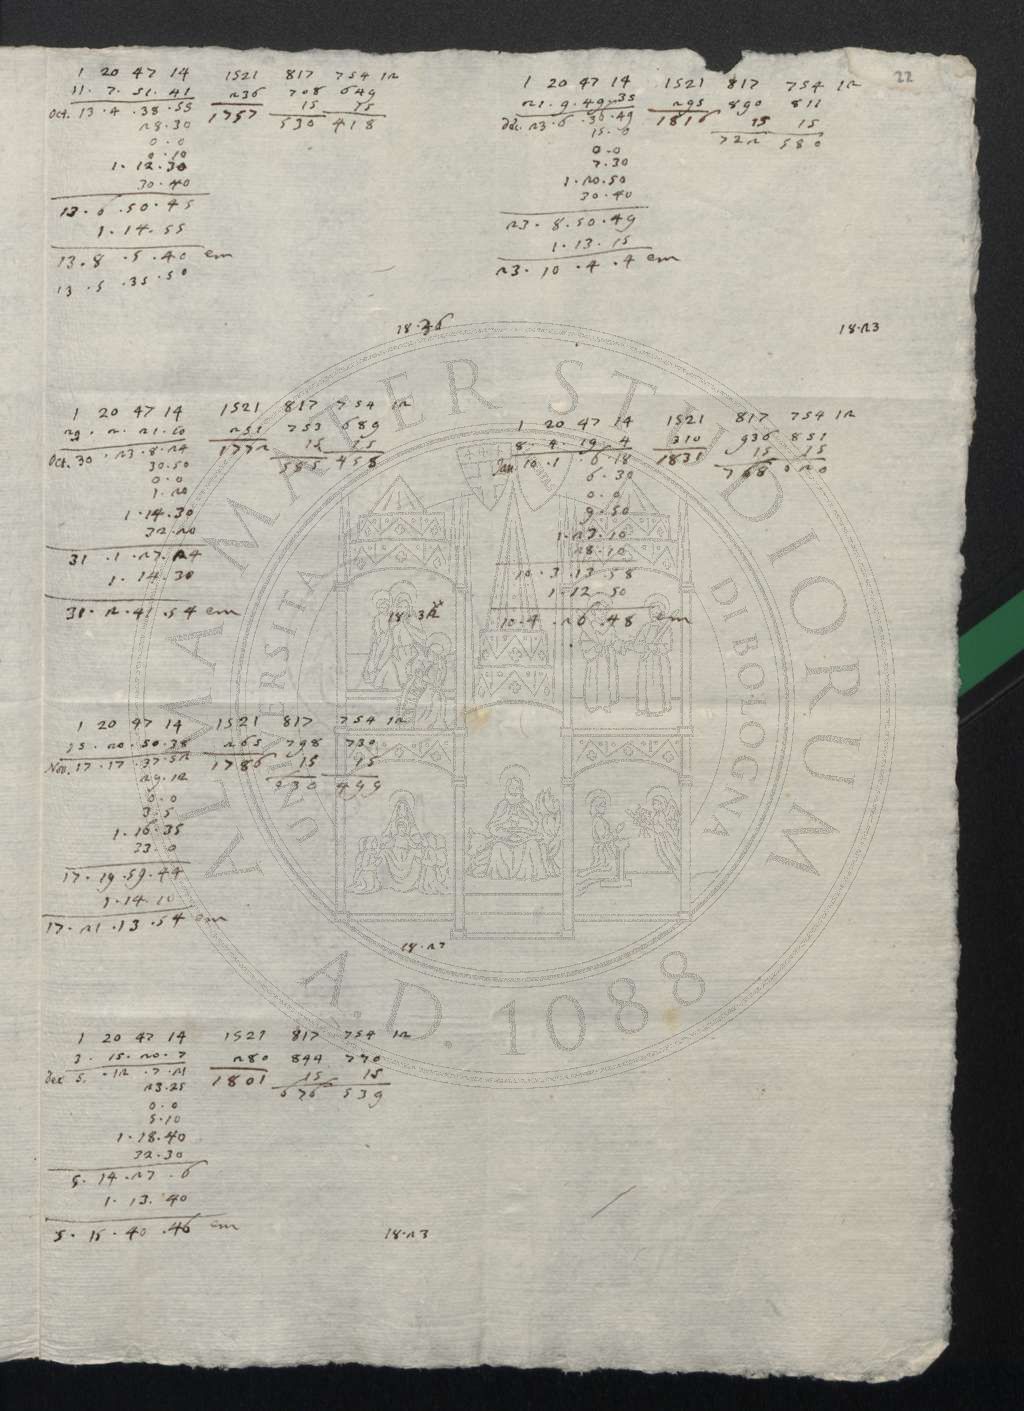 22
1 20 47 14 1521 817 754 12
11. 7. 51. 41 236 708 649
Oct. 13. 4. 38. 55 1757 15 15
28. 30 530 418
0. 0
0. 10
1. 12. 30
30. 40
13. 6. 50. 45
1. 14. 55
13. 8. 5. 40 em
13. 5. 35. 50
18. 36
1 20 47 14 1521 817 754 12
29. 2. 21. 10 251 753 689
Oct. 30. 23. 8. 24 1772 15 15
30. 50 585 458
0. 0
1. 20
1. 14. 30
32. 20
31. 1. 27. 24
1. 14. 30
31. 2. 41. 54 em
18. 32
1 20 47 14 1521 817 754 12
15. 20. 50. 38 265 798 730
Nov. 17. 17. 37. 52 1786 15 15
29. 12 630 499
0. 0
3. 5
1. 16. 35
33. 0
17. 19. 59. 44
1. 14. 10
17. 21. 13. 54 em
18. 27
1 20 47 14 1521 817 754 12
3. 15. 20. 7 280 844 770
Dec 5. 12. 7. 21 1801 15 15
23. 25 676 539
0. 0
5. 10
1. 18. 40
32. 30
5. 14. 27. 6
1. 13. 40
5. 15. 40. 46 em
18. 23
1 20 47 14 1521 817 754 12
21. 9. 49. 35 295 890 811
Dec. 23. 6. 36. 49 1816 15 15
15. 0 722 580
0. 0
7. 30
1. 20. 50
30. 40
23. 8. 50. 49
1. 13. 15
23. 10. 4. 4 em
18. 23
1 20 47 14 1521 817 754 12
8. 4. 19. 4 310 936 851
Jan. 10. 1. 6. 18 1831 15 15
6. 30 768 620
0. 0
9. 50
1. 23. 10
28. 10
10. 3. 13. 58
1. 12. 50
10. 4. 26. 48 em
ALMA MATER STUDIORUM
UNIVERSITÀ DI BOLOGNA
A.D. 1088